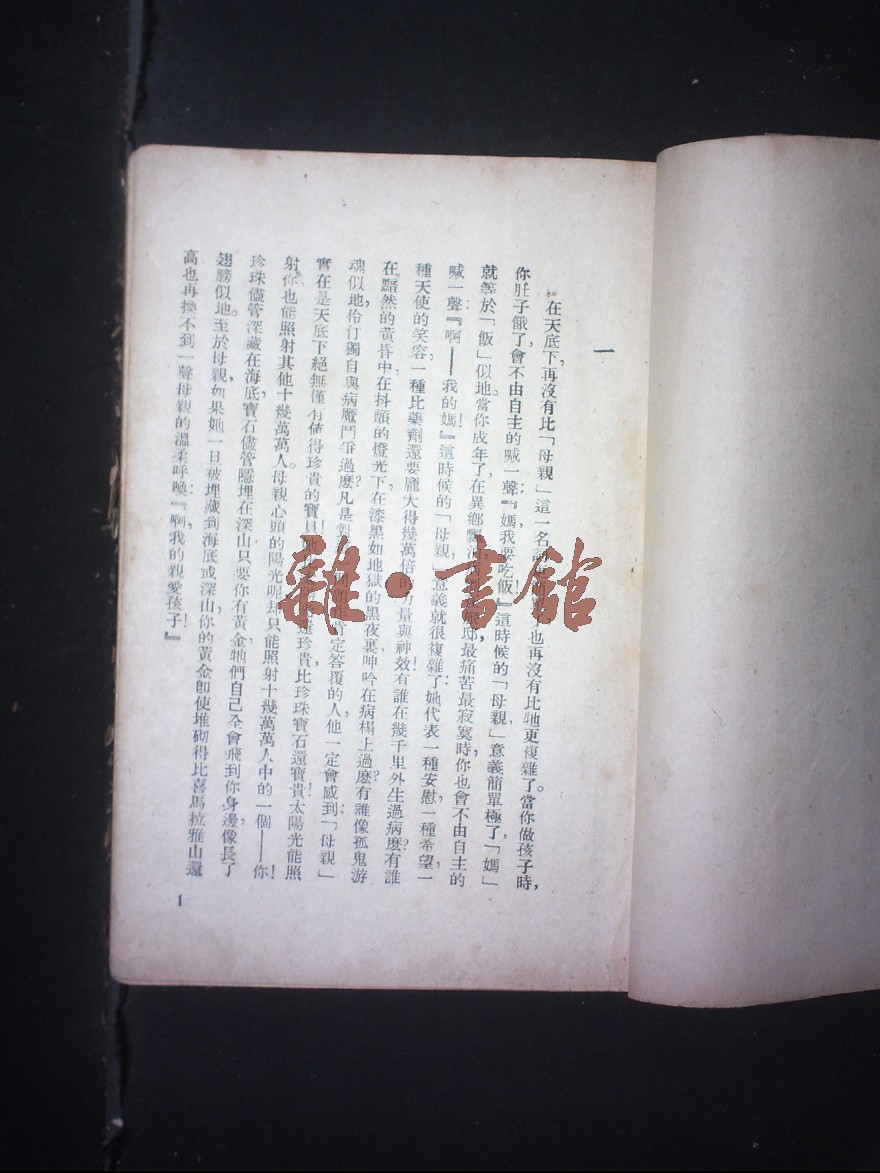 一
在天底下，再沒有比「母親」這一名詞也再沒有比牠更複雜了。當你做孩子時，
你肚子餓了，會不由自主的喊一聲：『媽，我要吃飯！』這時候的「母親」，意義簡單極了，「媽」
就等於「飯」似地。當你成年了，在異鄉最痛苦最寂寞時，你也會不由自主的
喊一聲：『啊——我的媽！』這時候的「母親」，意義就很複雜了：她代表一種安慰，一種希望，一
種天使的笑容，一種比藥劑還要龐大得幾萬倍的力量與神效！有誰在幾千里外生過病麽？有誰
在黯然的黃昏中，在抖顫的燈光下，在漆黑如地獄的黑夜裏，呻吟在病榻上過麽？有誰像孤鬼游
魂似地，伶仃獨自與病魔鬥爭過麽？凡是對肯定答覆的人，他一定會感到：「母親」
實在是天底下絕無僅有値得珍貴的寶貝！還珍貴，比珍珠寶石還寶貴！太陽光能照
射你，也能照射其他十幾萬萬人。母親心頭的陽光呢，却只能照射十幾萬萬人中的一個——你！
珍珠儘管深藏在海底，寶石儘管隱埋在深山，只要你有黃金，牠們自己全會飛到你身邊，像長了
翅膀似地。至於母親，如果她一旦被埋藏到海底或深山，你的黃金卽使堆砌得比喜馬拉雅山還
高，也再換不到一聲母親的溫柔呼喚：『啊，我的親愛孩子！』
1
雜·書館